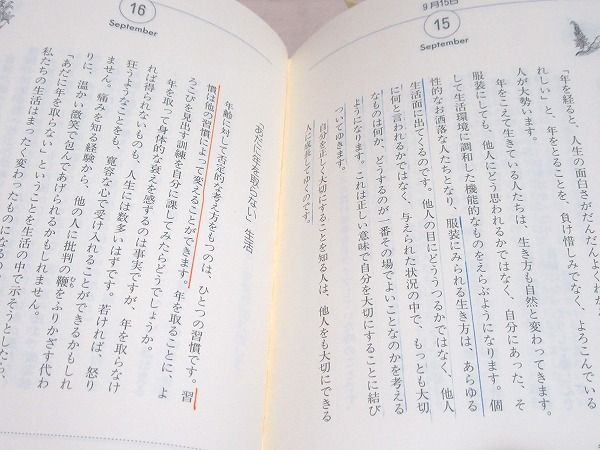 9月15日
15
September
「年を経ると、人生の面白さがだんだんよくわか
れしい」と、年をとることを、負け惜しみでなく、よろこんでいる
人が大勢います。
年をこえて生きている人たちは、生き方も自然と変わってきます。
服装にしても、他人にどう思われるかではなく、自分にあった、そ
して生活環境に調和した機能的なものをえらぶようになります。個
性的なお洒落な人たちとなり、服装にみられる生き方は、あらゆる
生活面に出てくるのです。他人の目にどううつるかではなく、他人
に何と言われるかではなく、与えられた状況の中で、もっとも大切
なものは何か、どうするのが一番その場でよいことなのかを考える
ようになります。これは正しい意味で自分を大切にすることに結び
ついてゆきます。
自分を正しく大切にすることを知る人は、他人をも大切にできる
人に成長してゆくのです。
16
September
"あだに年を取らない"生活
年齢に対して否定的な考え方をもつのは、ひとつの習慣です。習
慣は他の習慣によって変えることができます。年を取ることに、よ
ろこびを見出す訓練を自分に課してみたらどうでしょうか。
年を取って身体的な衰えを感ずるのは事実ですが、年を取らなけ
れば得られないものも、人生には数多いはずです。若ければ、怒り
狂うようなことをも、寛容な心で受け入れることができるかもしれ
ません。痛みを知る経験から、他の人に批判の鞭をふりかざす代わ
りに、温かい微笑で包んであげられるかもしれません。
「あだに年を取らない」ということを生活の中で示そうとしたら、
私たちの生活はまったく変わったものになるの